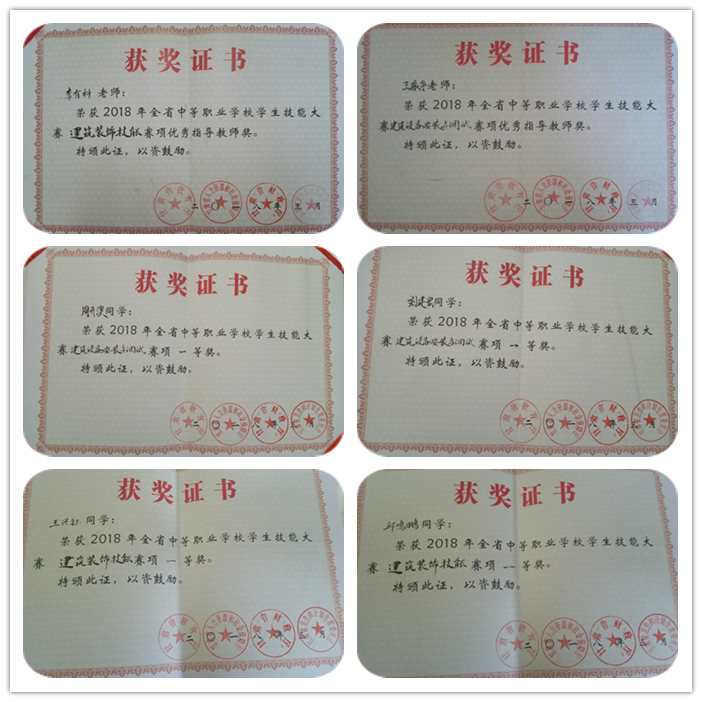 获奖证书
老师：
荣获2018年全省中等职业学校学生技能大
赛 建筑装饰技能 赛项优秀指导教师奖。
特颁此证，以资鼓励。
二〇一八年三月
获奖证书
老师：
荣获2018年全省中等职业学校学生技能大
赛建筑设备安装与调试赛项优秀指导教师奖。
特颁此证，以资鼓励。
二〇一八年三月
获奖证书
同学：
荣获2018年全省中等职业学校学生技能大
赛建筑设备安装与调试赛项 一等奖。
特颁此证，以资鼓励。
获奖证书
同学：
荣获2018年全省中等职业学校学生技能大
赛建筑设备安装与调试赛项 一等奖。
特颁此证，以资鼓励。
获奖证书
同学：
荣获2018年全省中等职业学校学生技能大
赛 建筑装饰技能赛项 一等奖。
特颁此证，以资鼓励。
获奖证书
邱鸣鹏同学：
荣获2018年全省中等职业学校学生技能大
赛 建筑装饰技能赛项 一等奖。
特颁此证，以资鼓励。